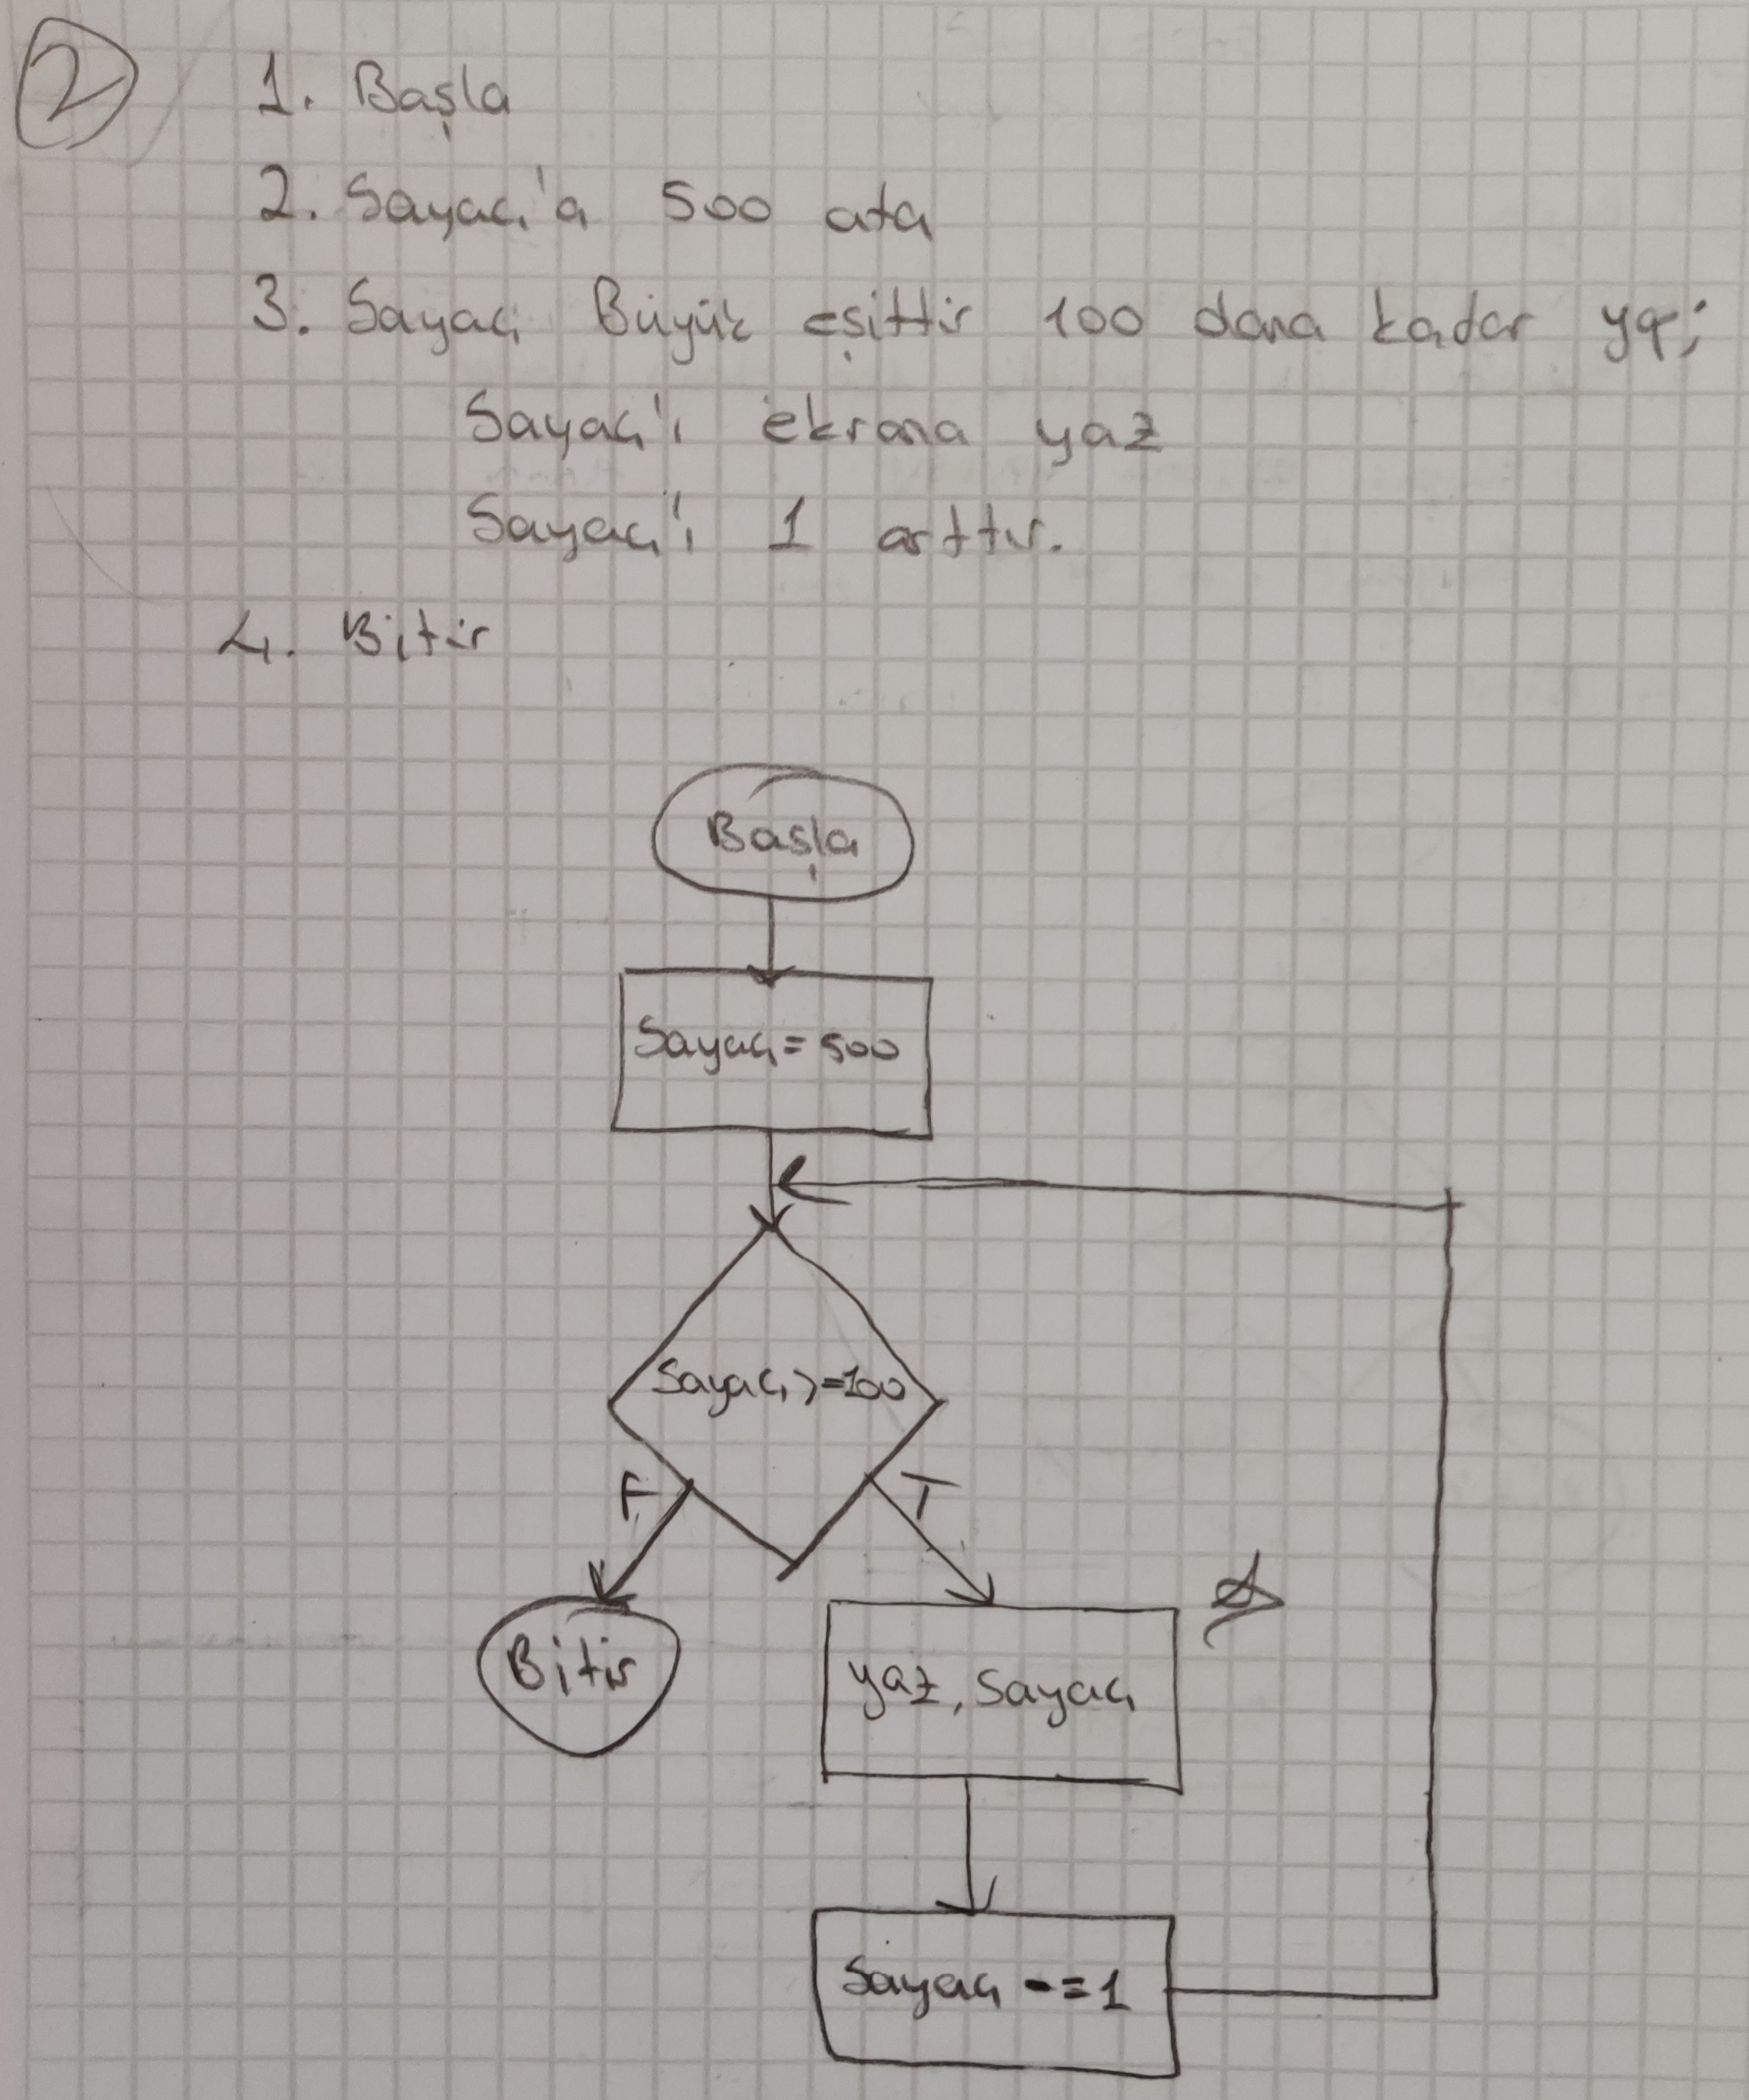 2
1. Başla
2. Sayaç'a 500 ata
3. Sayaç Büyük eşittir 100 dana kadar yap;
Sayaç'ı ekrana yaz
Sayaç'ı 1 arttır.
4. Bitir
Başla
Sayaç = 500
Sayaç >= 100
F T
Bitir
yaz, Sayaç
Sayaç -= 1